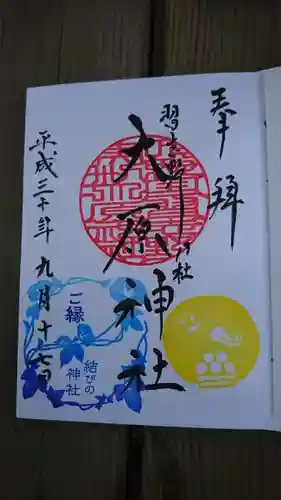 奉拝
習志野 社
大原神社
平成三十年九月十七日
ご縁
結びの
神社